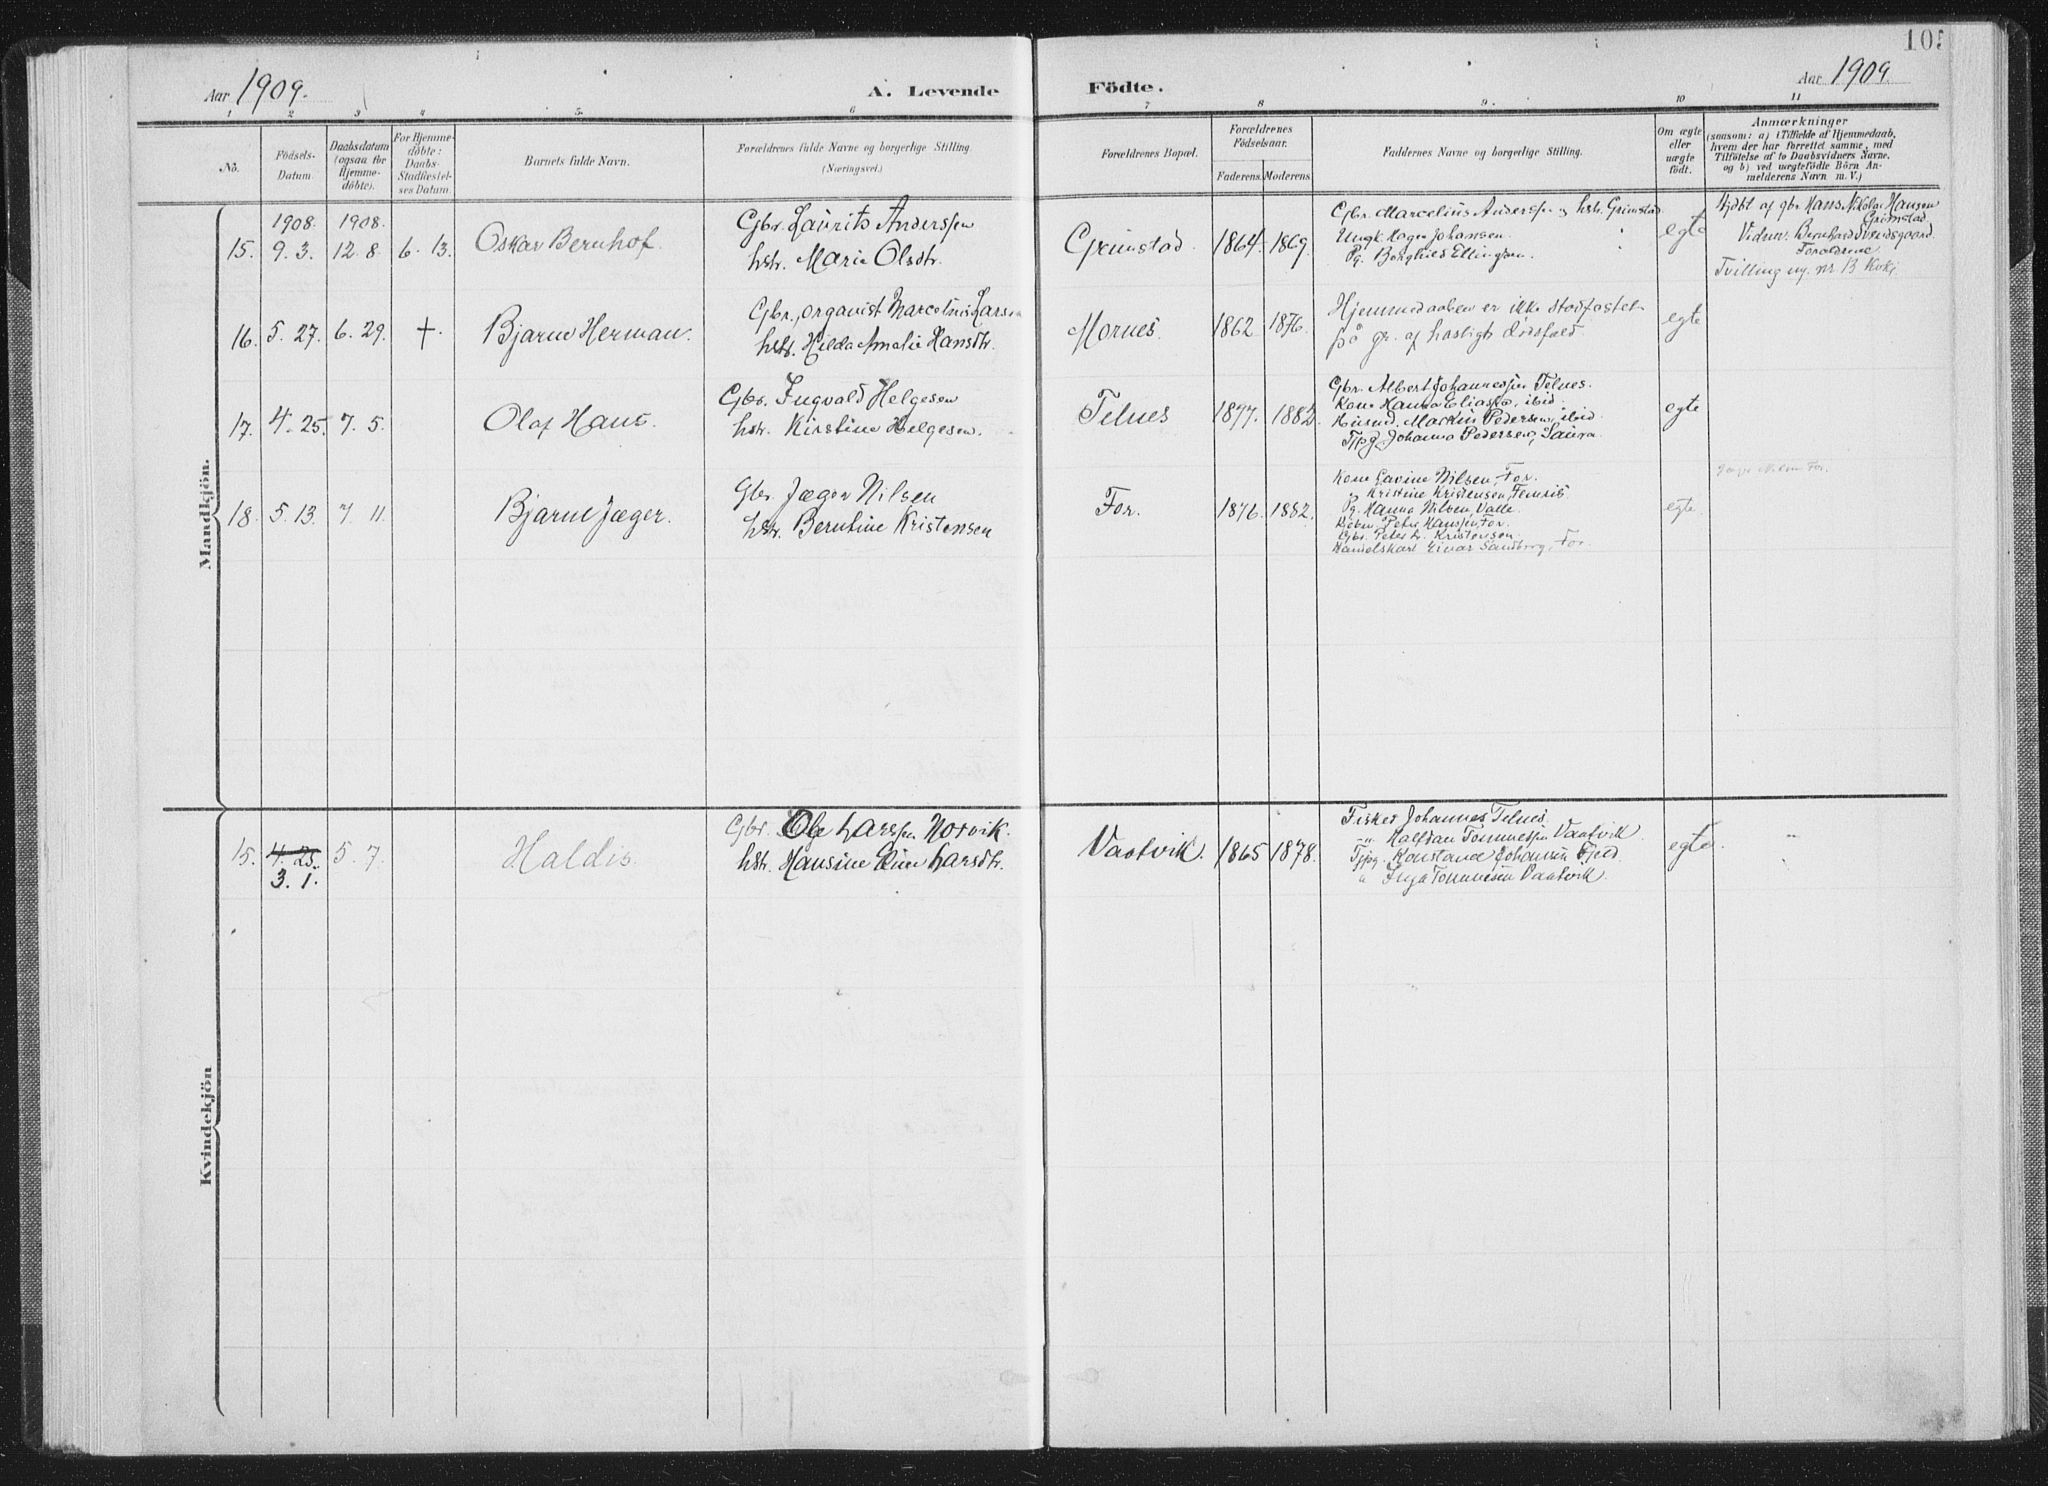 105
Aar 1909.
A. Levende Födte.
Aar 1909
1 2 3 4 5. 6 7 8 9. 10 11
No.
Födsels-
Datum
Daabsdatum
(ogsaa for
Hjemme-
döbte).
For Hjemme-
döbte:
Daabs-
Stadfæstel-
ses Datum
Barnets fulde Navn.
Forældrenes fulde Navne og borgerlige Stilling.
(Næringsvei.)
Forældrenes Bopæl.
Forældrenes
Födselsaar.
Faderens. Moderens.
Faddernes Navne og borgerlige Stilling.
Om ægte
eller
uægte
födt.
Anmærkninger
(saasom: a) i Tilfælde af Hjemmedaab,
hvem der har forrettet samme, med
Tilföielse af to Daabsvidners Navne,
og b) ved uægtefödte Börn An-
melderens Navn m. V.)
Mandkjön.
1908. 1908.
15. 9. 3. 12. 8. 6. 13.
Oskar Bernhof.
Gbr. Laurits Anderssen
hstr. Marie Olsdtr.
Grimstad. 1864. 1869.
Gbr. Marcelius Anderssen og hstr. Grimstad.
Ungk. Hagen Johansen.
Pg. Borghild Ellingsen.
egte
Hjdbt af gbr. Hans Nikolai Hansen
Grimstad
Vidner: Bernhard Svendsgaard
Forældrene
Tvilling
16. 5. 27. 6. 29. +.
Bjarne Herman.
Gbr., organist Marcelius Larsen
hstr. Hilda Amalie Hansdtr.
Mornes. 1862 1876.
Hjemmedaaben er ikke stadfæstet
på gr. af hastigt dødsfald.
egte
17. 4. 25. 7. 5.
Olaf Hans.
Gbr. Ingvald Helgesen
hstr. Kirstine Helgesen.
Telnes 1877. 1882.
Gbr. Albert Johannessen Telnes.
Kone Hanna Eliasd., ibid.
Husmd. Markus Pedersen, ibid.
Tjpg. Johanna Pedersen, Saura.
egte
18. 5. 13. 7. 11.
Bjarne Jæger.
Gbr. Jæger Nilsen
hstr. Berntine Kristensen
For. 1876. 1882.
Kone Lavine Nilsen, For.
" Kristine Kristensen,
Pg. Hanna Nilsen, Valle.
Peter Hanssen, For.
Gbr. Peter Kristensen
Handelskarl Einar Sandberg, For.
egte.
Jæger Nilsen For.
Kvindekjön
15. 4. 25. 5. 7.
3. 1.
Haldis.
Gbr. Ole Larssen Norvik.
hstr. Hansine Larsdtr.
Vaatvik. 1865 1878.
Fisker Johannes Telnes.
" Halfdan Tønnessen Vaatvik.
Tjpg. Konstanse Johansen Fjeld.
" Inga Tønnesen Vaatvik.
egte. "
"